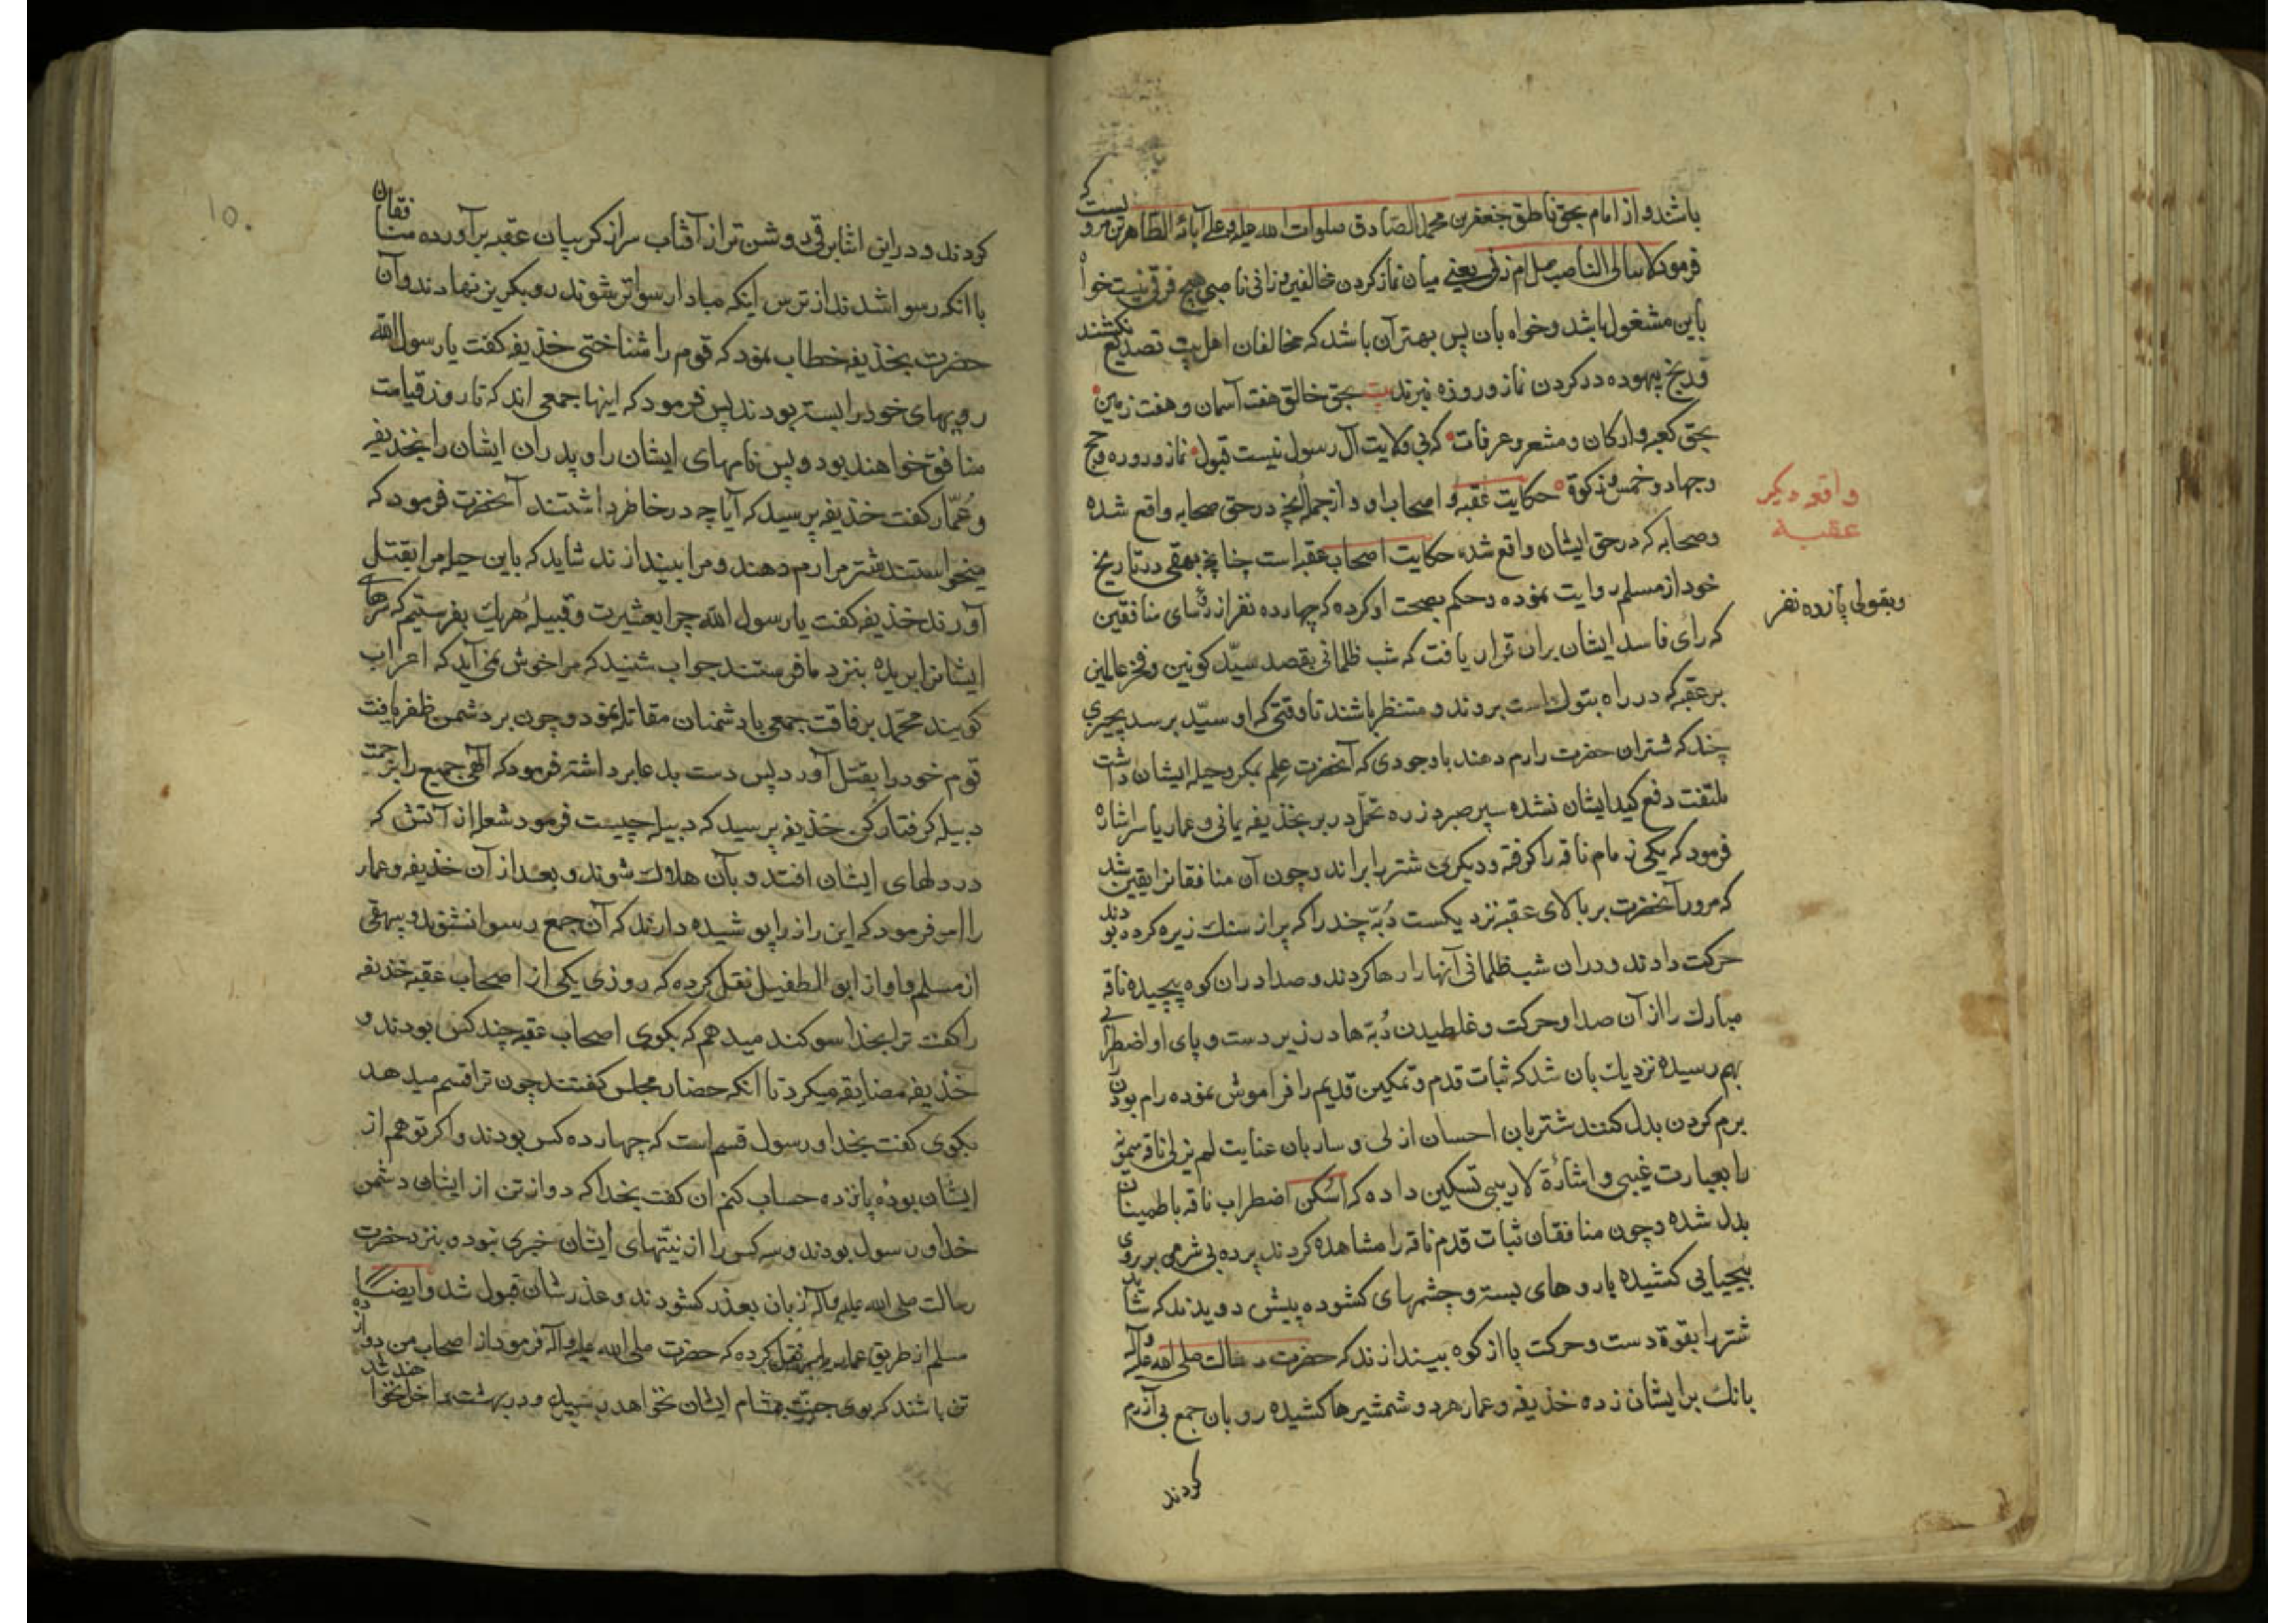 باشند و از امام بحق ناطق جعفر بن محمد الصادق صلوات الله علیه و علی آبائه الطاهرین مرویست که
فرمود لا یبالی الناصب صلی ام زنی یعنی میان نماز کردن مخالفین و زانی ناصبی هیچ فرقی نیست خواه
باین مشغول باشد و خواه بآن پس بهتر آن باشد که مخالفان اهل بیت تصدیع نکشند
و رنج بیهوده در کردن نماز و روزه نبرند بیت بحق خالق هفت آسمان و هفت زمین
بحق کعبه و ارکان و مشعر و عرفات که بی ولایت آل رسول نیست قبول نماز و روزه و حج
و جهاد و خمس و زکوة حکایت عقبه و اصحاب او و از جمله آنچه در حق صحابه واقع شده
واقعه دیگر
عقبة
و صحابه که در حق ایشان واقع شده حکایت اصحاب عقبه است چنانچه بیهقی در تاریخ
خود از مسلم روایت نموده و حکم بصحت او کرده که چهارده نفر از رؤسای منافقین
وبقولی پانزده نفر
که رأی فاسد ایشان بران قرار یافت که شب ظلمانی بقصد سیّد کونین و فخر عالمین
بر عقبه که در راه تبوك است بروند و منتظر باشند تا وقتی که او سیّد برسد بچیزی
چند که شتران حضرت را رم دهند باوجودی که آنحضرت علم بمکر و حیله ایشان داشت
ملتفت دفع کید ایشان نشده سپر صبر و زره تحمّل در بر بخذیفه یمانی و عمار یاسر اشاره
فرمود که یکی زمام ناقه را گرفته و دیگری شتر را براند و چون آن منافقانرا یقین شد
که مرور آنحضرت بر بالای عقبه نزدیکست دُبّه چند را که پر از سنك ریزه کرده بودند
حرکت دادند و دران شب ظلمانی آنها را رها کردند و صدا دران کوه پیچیده ناقه
مبارك را از آن صدا و حرکت و غلطیدن دُبّه ها در زیر دست و پای او اضطرابی
بهم رسیده نزدیك بان شد که ثبات قدم و تمکین قدیم را فراموش نموده رام بودن
برم کردن بدل کند شتربان احسان ازلی و ساربان عنایت لم یزلی ناقه
را بعبارت غیبی و اشارۀ لاریبی تسکین داده که اُسکن اضطراب ناقه باطمینان
بدل شده و چون منافقان ثبات قدم ناقه را مشاهده کردند پرده بی شرمی بر روی
بیحیایی کشیده با روهای بسته و چشمهای کشوده پیش دویدند که شاید
شتر را بقوة دست و حرکت پا از کوه بیندازند که حضرت رسالت صلی الله علیه و آله
بانك بر ایشان زده خذیفه و عمار هر دو شمشیرها کشیده رو بان جمع بی آزرم
کردند
10.
کردند و دراین اثنا برقی روشن تر از آفتاب سر از کریبان عقبه برآورده منافقان
باانکه رسوا شدند از ترس اینکه مبادا رسواتر شوند رو بکریز نهادند و آن
حضرت بخذیفه خطاب نمود که قوم را شناختی خذیفه کفت یا رسول الله
رویهای خود را بسته بودند پس فرمود که اینها جمعی اند که تا روز قیامت
منافق خواهند بود و پس نامهای ایشان را و پدران ایشان را بخذیفه
و عُمّار کفت خذیفه پرسید که آیا چه در خاطر داشتند آنحضرت فرمود که
میخواستند شتر مرا رم دهند و مرا بیندازند شاید که باین حیله مرا بقتل
آورند خذیفه کفت یا رسول الله چرا بعشیرت و قبیلۀ هریك بفرستیم که سرهای
ایشانرا بریده بنزد ما فرستند جواب شنید که مرا خوش نمی آید که اعراب
کویند محمّد برفاقت جمعی با دشمنان مقاتله نمود و چون بر دشمن ظفر یافت
قوم خود را بقتل آورد پس دست بدعا برداشته فرمود که آلهی جمیع را بزحمت
دبیله کرفتار کن خذیفه پرسید که دبیله چیست فرمود شعله از آتش که
در دلهای ایشان افتد و بآن هلاك شوند و بعد از آن خذیفه و عمار
را امر فرمود که این راز را پوشیده دارند که آن جمع رسوا نشوند و بیهقی
از مسلم و او از ابو الطفیل نقل کرده که روزی یکی از اصحاب عقبه خذیفه
را کفت ترا بخدا سوکند میدهم که بکوی اصحاب عقبه چند کس بودند و
خذیفه مضایقه میکرد تا آنکه حضار مجلس کفتند چون ترا قسم میدهد
بکوی کفت بخدا و رسول قسم است که چهارده کس بودند و اکر تو هم از
ایشان بودۀ پانزده حساب کنم ان کفت بخدا که دوازتن از ایشان دشمن
خدا و رسول بودند و سه کس را از نیّتهای ایشان خبری نبود و بنزد حضرت
رسالت صلی الله علیه و آله زبان بعذر کشودند و عذرشان قبول شد و ایضاً
مسلم از طریق عمار یاسر نقل کرده که حضرت صلی الله علیه و آله فرمود از اصحاب من دوازده
تن باشند که بوی جنت بمشام ایشان نخواهد رسید و در بهشت داخل نخواهند شد